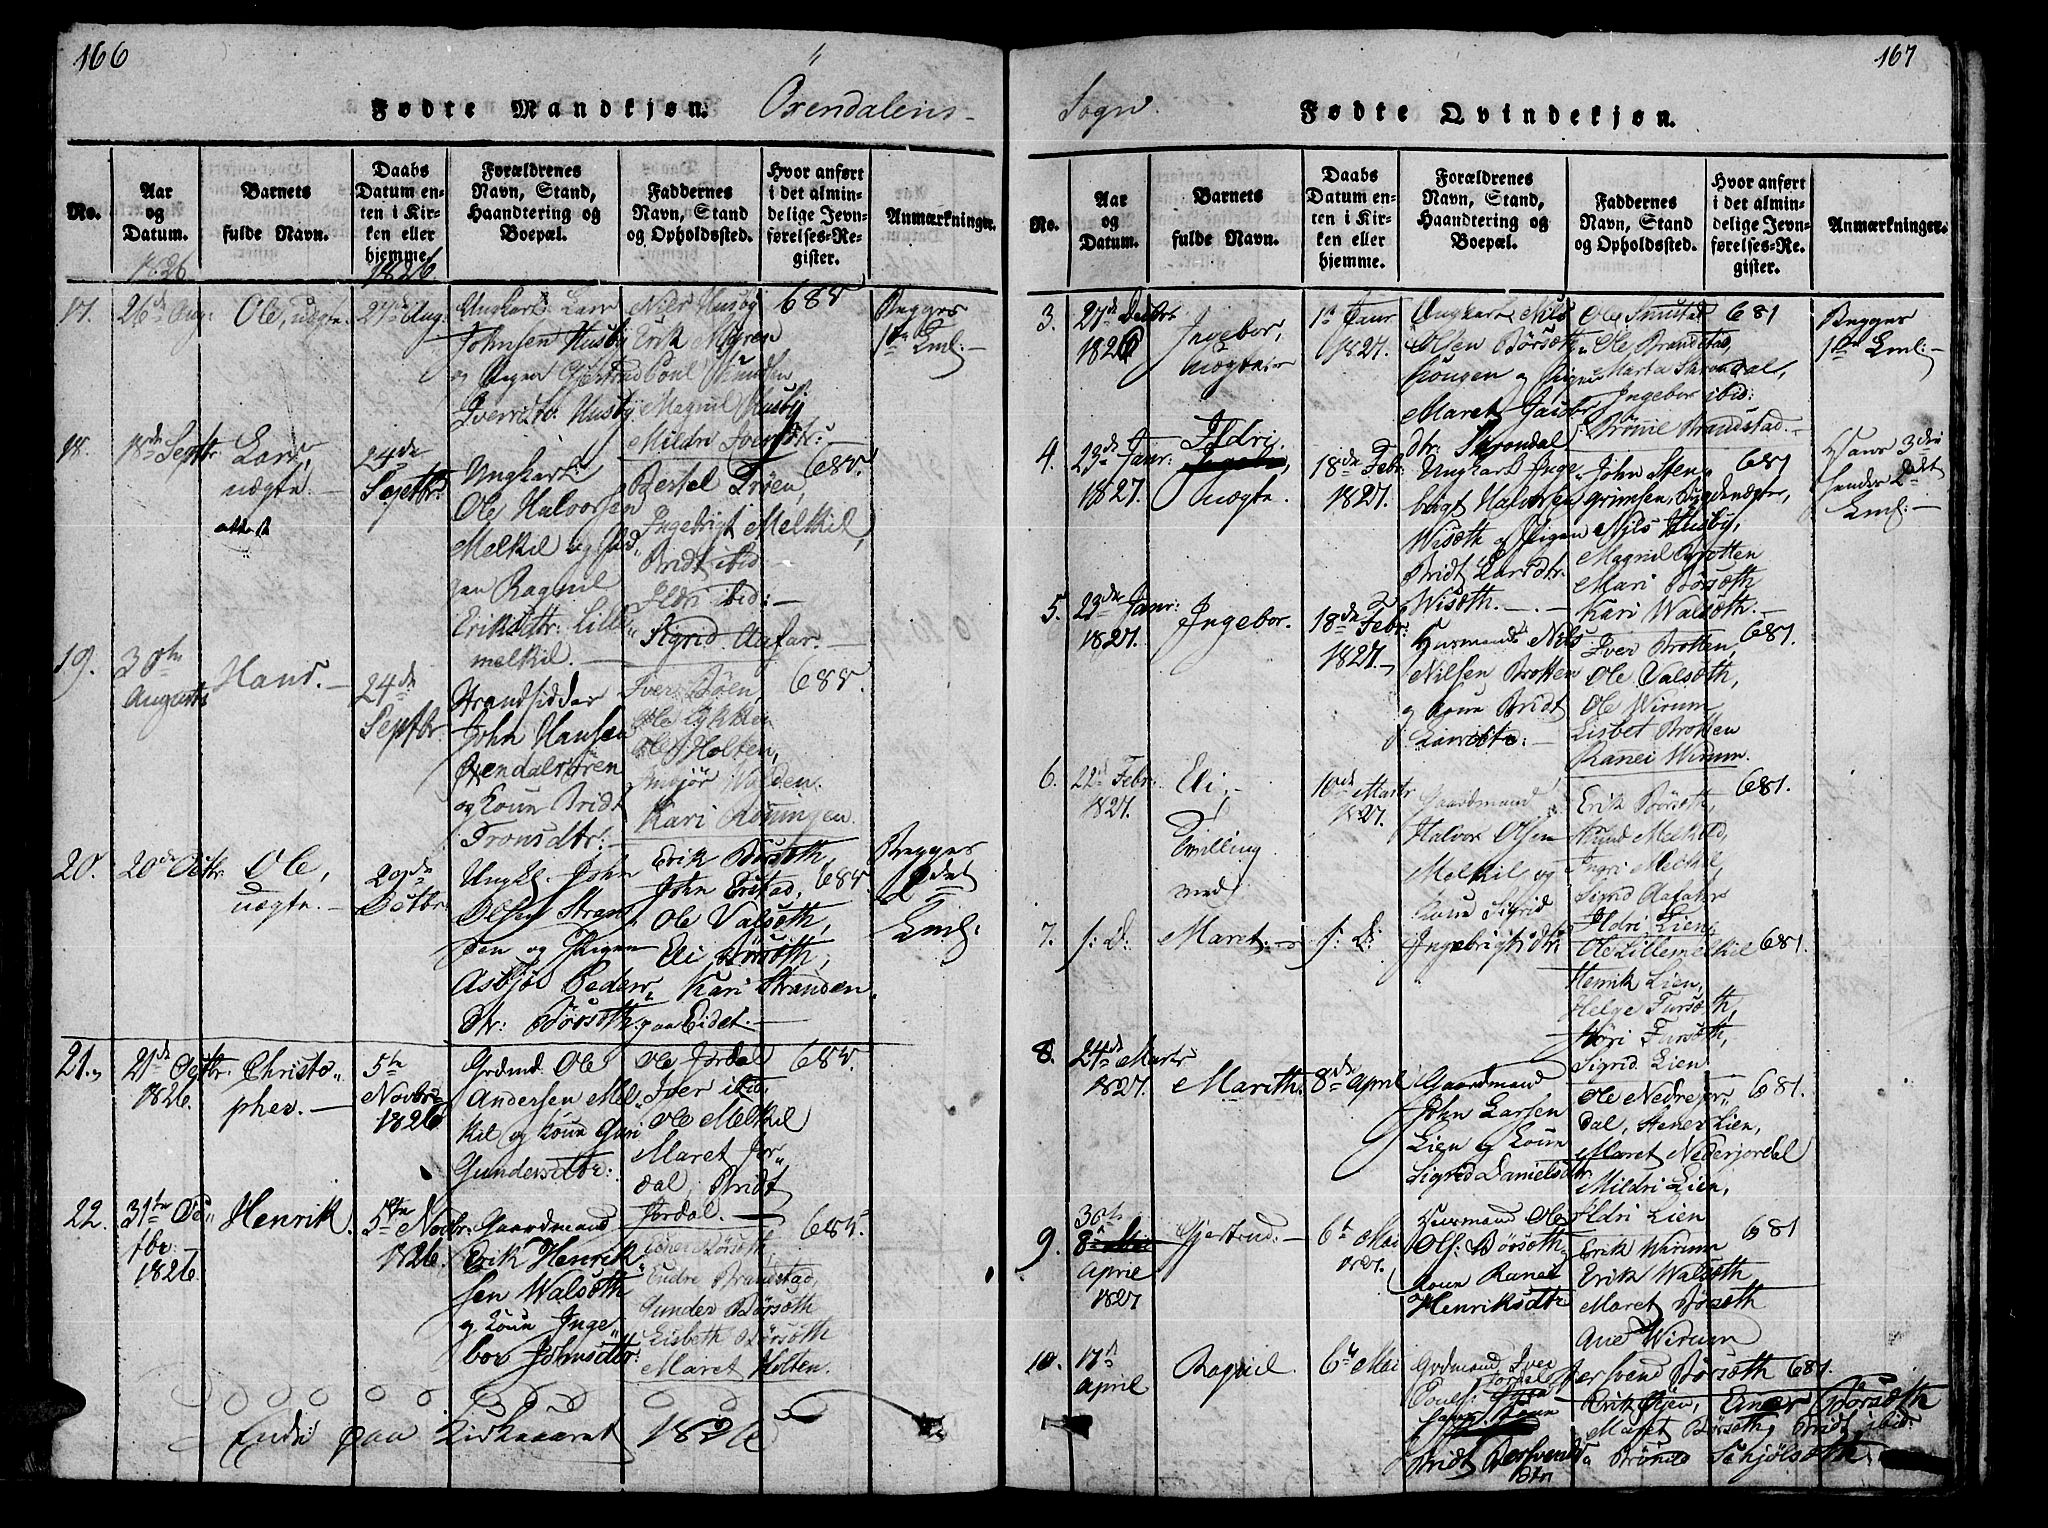 166
Fødte Mandkjøn. Örendalens-
No.
Aar og Datum.
Barnets fulde Navn.
Daabs Datum enten i Kirken eller hjemme.
Forældrenes Navn, Stand, Haandtering og Boepæl.
Faddernes Navn, Stand og Opholdssted.
Hvor anført i det almindelige Jevnførelses-Register.
Anmærkninger.
1826
1826
17.
26de Aug:
Ole, uægte.
27de Aug:
Ungkarl Lars
Johnsen Husby
og Pigen
Iversdtr. Husby
Niels Husby
Erik Myren
Poul Knudsen
Magnil Husby
Mildri Iversdtr:
688
Begges
1te Leml:
18.
18de Septbr
Lars,
uægte.
24de
Septbr.
Ungkarl
Ole Halvorsen
Melkil og Pi-
gen Ragnil
Eriksdtr: Lill-
melkil.
Bertel Trøen,
Ingebrigt Melkil,
Bridt ibid
Ildri ibid:
Sigrid Aafar.
688.
19.
30te
Augusti
Hans.
24de
Septbr.
Strandsidder
John Hansen
Øxendalsøren
og Kone Bridt
Tronsdtr:
Iver Böen,
Ole Lykken
Ole Holten,
Kari Röningen.
688.
20.
20de Octbr.
Ole,
uægte.
29de
Octbr:
Ungkl. John
Olsen Stran-
den og Pigen
Asbjør Peders
dtr: Börsöth.
Erik Börsöth,
John Erstad,
Ole Valsöth,
Eli Börsöth,
Kari Stranden
paa Eidet.
688.
Begges
2det
Leml:
21.
21de Octbr.
1826.
Christo-
pher.
5te
Novbr:
1826
Grdmd. Ole
Andersen Mel-
kil og Kone Guri
Gundersdtr:
Ole Jordal
Iver ibid.
Ole Melkil
Maret Jor-
dal, Bridt
Jordal.
688.
22.
31te Oc-
tbr:
1826.
Henrik.
5te Novbr:
1826.
Gaardmand
Erik Henrik-
sen Walsöth
og Kone Inge-
bor Johnsdtr:
Iver Börsöth,
Endre Brandstad,
Gunder Börsöth
Lisbeth Börsöth
Maret Holten.
688.
Ende paa Kirkeaaret 1826
167
Sogn. Fødte Qvindekjøn.
No.
Aar og Datum.
Barnets fulde Navn.
Daabs Datum enten i Kirken eller hjemme.
Forældrenes Navn, Stand, Haandtering og Boepæl.
Faddernes Navn, Stand og Opholdssted.
Hvor anført i det almindelige Jevnførelses-Register.
Anmærkninger.
3.
27de Decbr
1826
Ingebor,
uægte.
1te Janr
1827.
Ungkarl Nils
Olsen Börsöth-
hougen og Pigen
Maret Jacobs
dtr. Skrondal
Ole Snustad
Ole Brandstad,
Marta Skrondal,
Ingebor ibid:
Brönil Brandstad.
681
Begges
1te Leml:
4.
23de Janr:
1827.
Ildri.
Uægte.
18de Febr:
1827.
Ungkarl Inge-
brigt Halvorsen
Wisöth og Pigen
Bridt Larsdtr.
Wisöth.
John Sten-
grimsen, Bygdevægter,
Nils Husby,
Magnil Brotten
Mari Börsöth
Kari Walsöth.
681
Hans 3die
hendes 2det
Leml:
5.
23de Janr:
1827.
Ingebor.
18de Febr:
1827.
Husmand Nils
Nilsen Brotten
og Kone Bridt
Larsdtr:
Iver Brotten,
Ole Valsöth,
Ole Wirum
Lisbet Brotten
Ranei Wirum.
681.
6.
22de Febr:
1827.
Eli,
Tvilling
med
10de Marts
1827.
Gaardmand
Halvor Olsen
Melkil og
Kone Sigrid
Ingebrigtsdtr
Erik Börsöth,
Melkild,
Ingri Melkil,
Sigrid Aafahr
Ildri Lien,
681.
7.
s: D:
Maret:
s: D:
Ole Lillemelkil
Henrik Lien,
Helge Fursöth,
Föri Fursöth,
Sigrid Lien
681.
8.
24de Marts
1827.
Marith.
8de April
Gaardmand
John Larsen
Lien og Kone
Sigrid Danielsdtr
Ole Nedrejor-
dal, Stener Lien,
Maret Nederjordal
Mildri Lien,
Ildri Lien
681.
9.
30te
April
1827
Gjertrud.
6te Mai
1827.
Husmand Ole
Ols: Börsöth
Kone Ranei
Henriksdtr
Erik Wirum
Erik Walsöth
Maret Börsöth
Ane Wirum
681
10.
17de
April
Ragnil.
6te Mai
Grdmand Iver
Jordal
Bridt Bersvends
dtr
Bersvend Börsöth
Erik Öyen, Einer Börsöth
Maret Börsöth, Bridt ibid.
Brönild Schjölsöth
681.